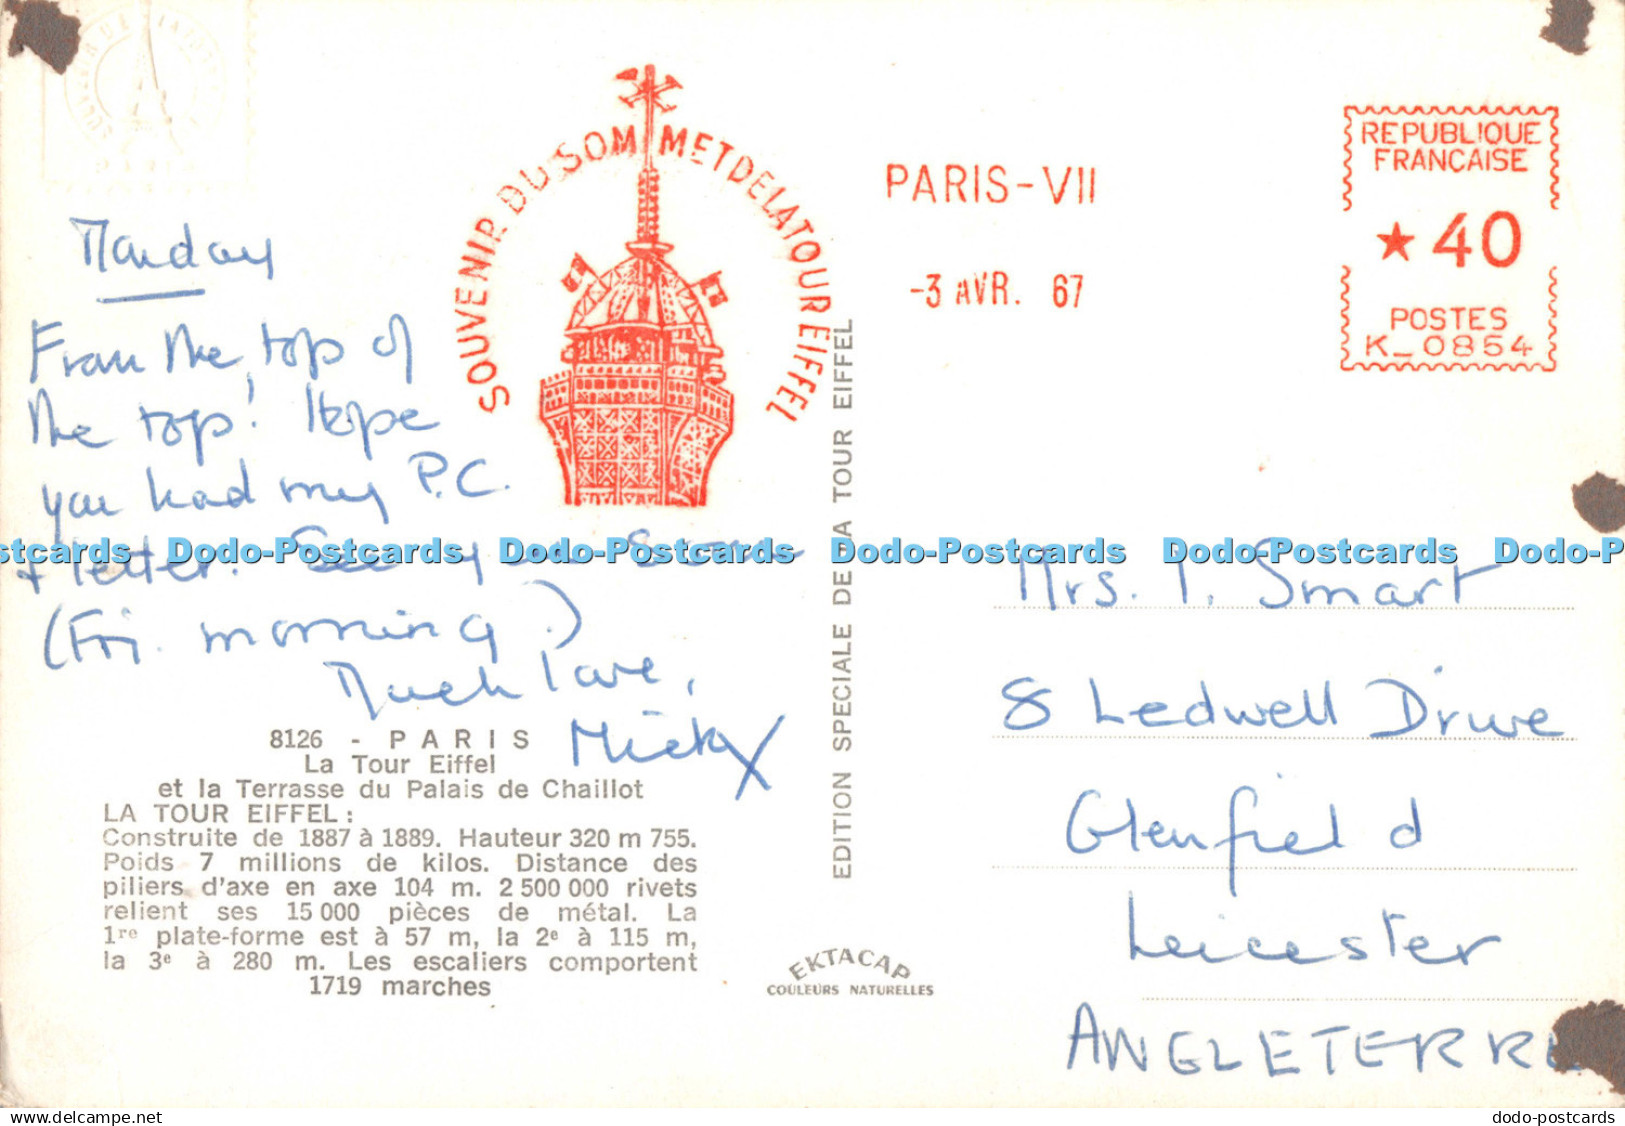 SOUVENIR DU SOMMET DE LA TOUR EIFFEL
PARIS-VII
-3 AVR. 67
REPUBLIQUE
FRANÇAISE
★ 40
POSTES
K_0854
Monday
From the top of
the top! Hope
you had my P.C.
+ letter. See you soon
(Fri. morning.)
Much love,
Micky X
8126 - PARIS
La Tour Eiffel
et la Terrasse du Palais de Chaillot
LA TOUR EIFFEL :
Construite de 1887 à 1889. Hauteur 320 m 755.
Poids 7 millions de kilos. Distance des
piliers d'axe en axe 104 m. 2 500 000 rivets
relient ses 15 000 pièces de métal. La
1re plate-forme est à 57 m, la 2e à 115 m,
la 3e à 280 m. Les escaliers comportent
1719 marches
EDITION SPECIALE DE LA TOUR EIFFEL
EKTACAP
COULEURS NATURELLES
Mrs. I. Smart
8 Ledwell Drive
Glenfield
Leicester
ANGLETERRE
stcards Dodo-Postcards Dodo-Postcards Dodo-Postcards Dodo-Postcards Dodo-P
dodo-postcards